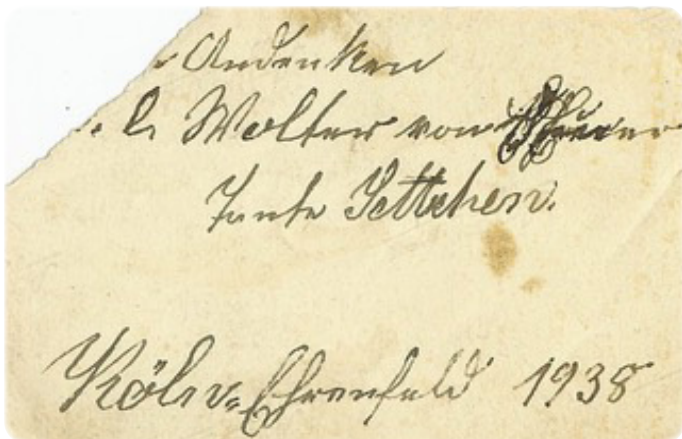 Andenken
l. Walter von seiner
Tante Settchen.
Köln-Ehrenfeld 1938